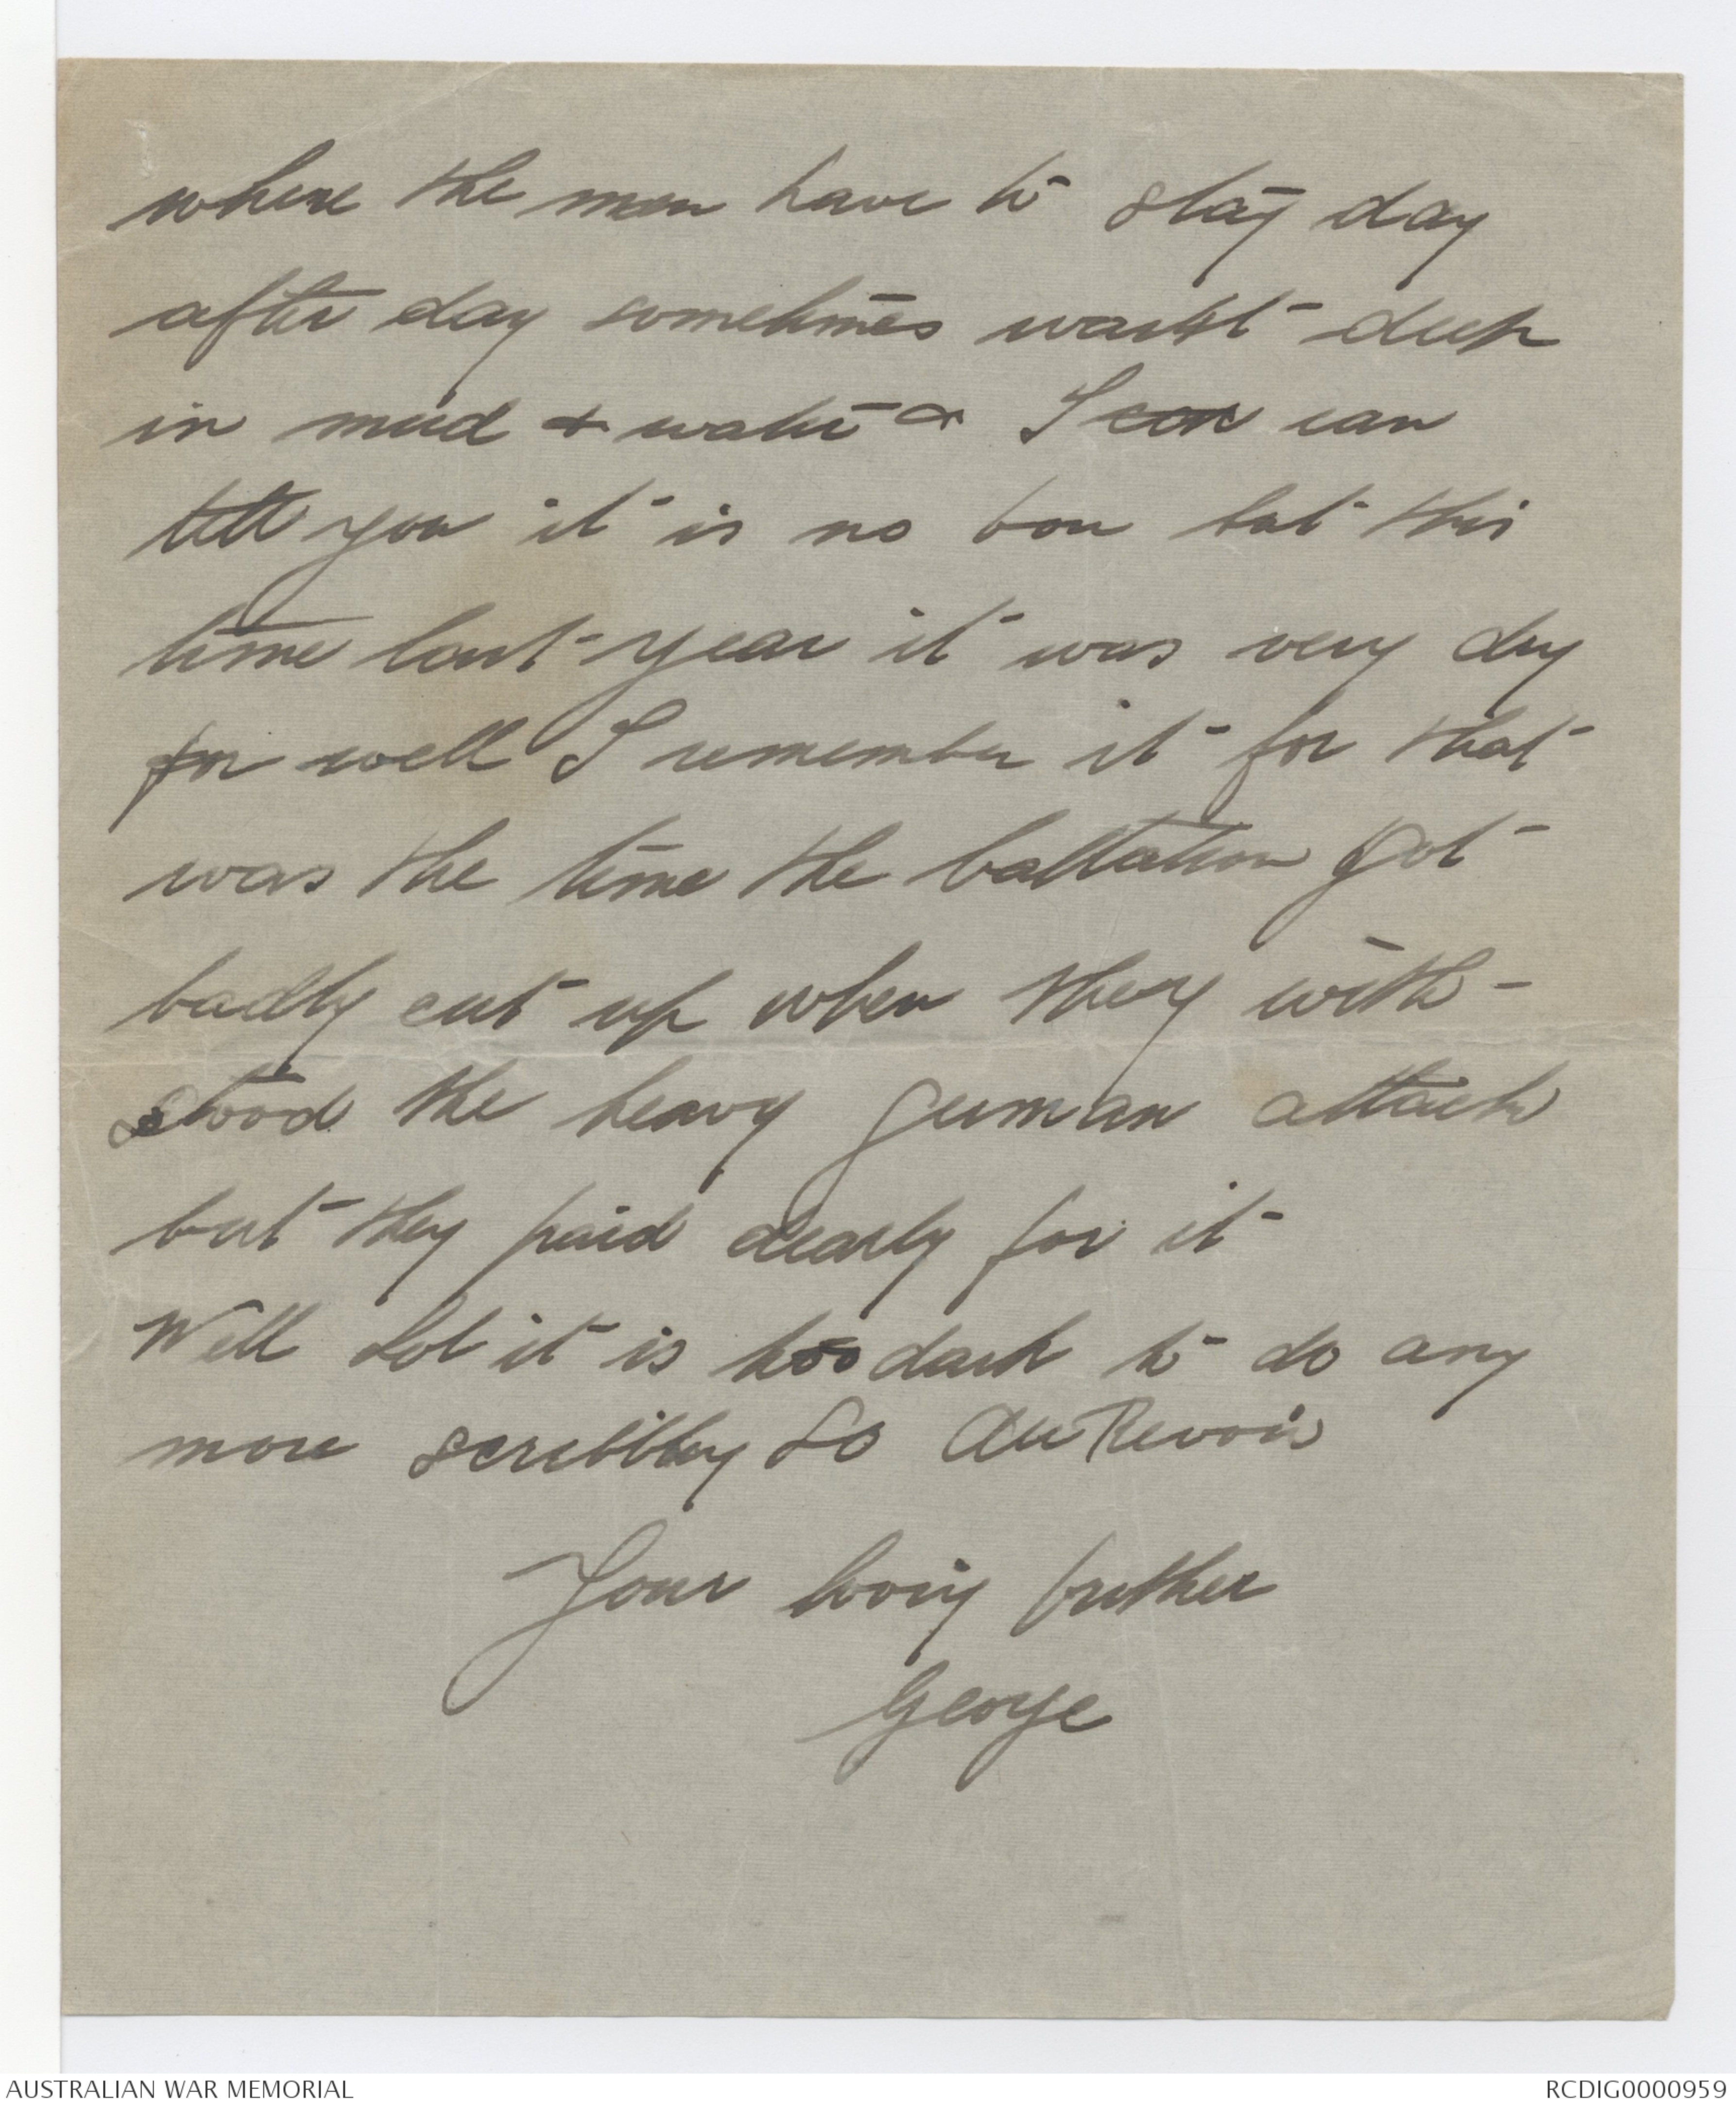 where the men have to stay day
after day sometimes waist deep
in mud & water & I can can
tell you it is no bon but this
time last year it was very dry
for well I remember it for that
was the time the battalion got
badly cut up when they with-
stood the heavy german attack
but they paid dearly for it
Well Dot it is too dark to do any
more scribbling So Au Revoir
Your loving brother
George
AUSTRALIAN WAR MEMORIAL
RCDIG0000959